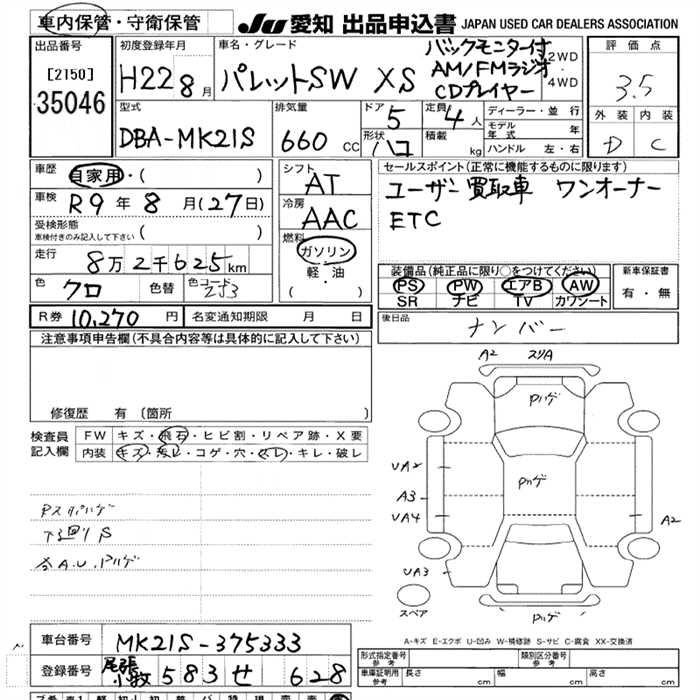 車内保管・守衛保管
JU 愛知 出品申込書 JAPAN USED CAR DEALERS ASSOCIATION
出品番号
[2150]
35046
初度登録年月
H22 8月
車名・グレード
パレットSW XS
バックモニター付
AM/FMラジオ
CDプレイヤー
2WD
4WD
評価点
3.5
外装 内装
D C
型式
DBA-MK21S
排気量
660 CC
ドア 5
形状 ハコ
定員 4人
積載 kg
ディーラー・並行
モデル年式 年
ハンドル 左・右
車歴 自家用・( )
車検 R9年8月(27日)
受検形態
車検付きのみ記入して下さい ( )
走行 8万2千625km
色 クロ 色替 色コード ZJ3
シフト
AT
冷房
AAC
燃料
ガソリン
軽・油
( )
セールスポイント(正常に機能するものに限ります)
ユーザー買取車 ワンオーナー
ETC
装備品(純正品に限り○をつけてください)
PS PW エアB AW
SR ナビ TV カワシート
新車保証書
有・無
R券 10,270円 名変通知期限 月 日
後日品
ナンバー
注意事項申告欄(不具合内容等は具体的に記入して下さい)
修復歴 有 (箇所 )
検査員
記入欄
FW キズ・飛石・ヒビ割・リペア跡・X要
内装 キズ・汚レ・コゲ・穴・スレ・キレ・破レ
下廻りS
A2 スリA
Pハゲ
UA2
Pハゲ
A3
UA4
A2
UA3
スペア
Pハゲ
A-キズ E-エクボ U-凹み W-補修跡 S-サビ C-腐食 XX-交換済
車台番号 MK21S-375333
登録番号 尾張小牧 583 せ 628
形式指定番号 参考
類別区分番号 参考
車庫証明用 参考 長さ cm 幅 cm 高さ cm